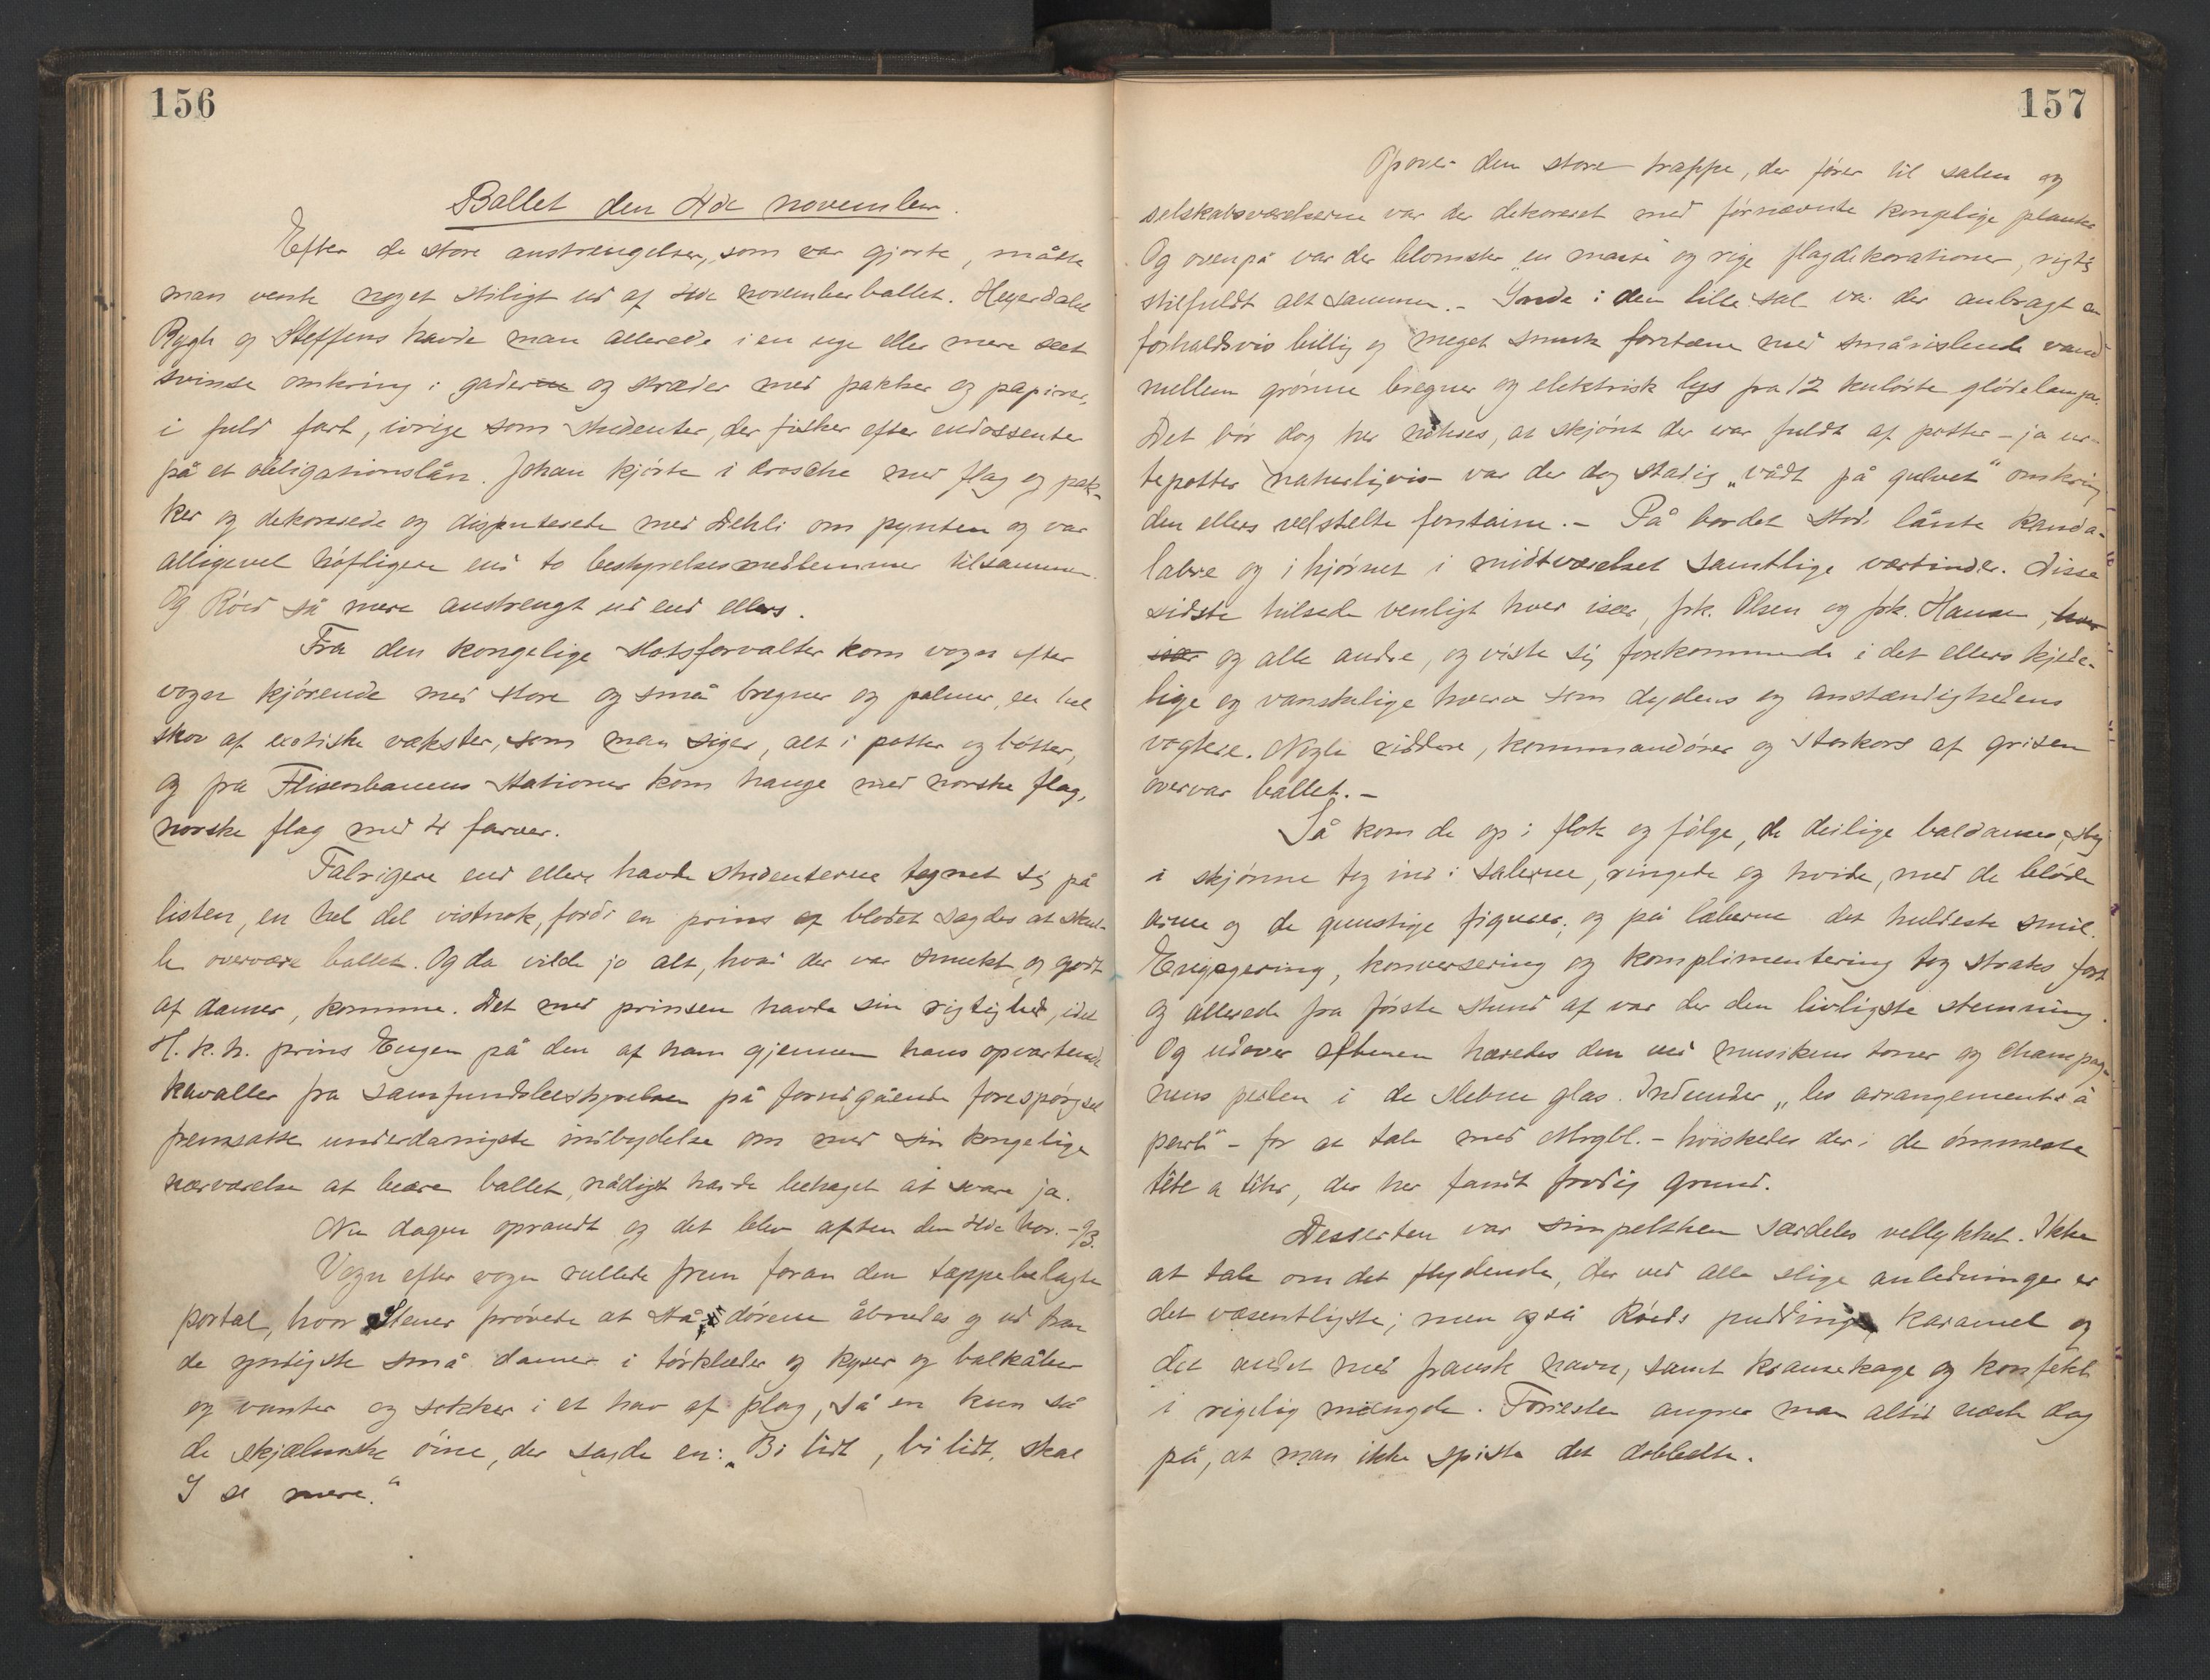 156
Ballet den 4de november.
Efter de store anstrengelser, som var gjorte, måtte
man vente noget stiligt ud af 4de novemberballet. Heyerdahl
Rygh og Steffens havde man allerede i en uge eller mere seet
svinse omkring i gaderne og stræder med pakker og papirer,
i fuld fart, ivrige som studenter, der fisker efter endossenter
på et obligationslån. Johan kjørte i drosche med flag og pak-
ker og dekorerede og disputerede med Dehli om pynten og var
alligevel høfligere end to bestyrelsesmedlemmer tilsammen.
Og Röed så mere anstrengt ud end ellers.
Fra den kongelige slotsforvalter kom vogn efter
vogn kjørende med store og små bregner og palmer, en hel
skov af exotiske vækster, som man siger, alt i potter og bøtter,
og fra Flisenbanens stationer kom hauge med norske flag,
norske flag med 4 farver.
Talrigere end ellers havde studenterne tegnet sig på
listen, en hel del vistnok, fordi en prins af blodet sagdes at skul-
le overvære ballet. Og da vilde jo alt, hvad der var smukt og godt
af damer, komme. Det med prinsen havde sin rigtighed, idet
H. k. h. prins Eugen på den af ham gjennem hans opvartende
kavaller fra samfundsbestyrelsen på forudgående forespørgsel
fremsatte underdanigste indbydelse om med sin kongelige
nærværelse at beære ballet, nådigst havde behaget at svare ja.
Nu dagen oprandt og det blev aften den 4de nov. - 93.
Vogn efter vogn rullede frem foran den tæppebelagte
portal, hvor Stener prøvede at stå; dørene åbnedes og ud kom
de yndigste små damer i tørklæder og kyser og balkåber
og vanter og sokker i et hav af plag, så en kun så
de skjælmske öine, der sagde en: „Bi lidt, bi lidt, skal
I se mere."
157
Opover den store trappe, der fører til salen og
selskabsværelserne var der dekoreret med førnævnte kongelige planter
Og ovenpå var der blomster „en masse og rige flagdekorationer, rigtig
stilfuldt altsammen. - Inde i den lille sal var der anbragt en
forholdsvis billig og meget smuk fontæne med smårislende vand
mellem grønne bregner og elektrisk lys fra 12 kulørte glødelamper.
Det bør dog her nåtises, at skjønt der var fuldt af potter - ja ur-
tepotter naturligvis - var der dog stadig „vådt på gulvet" omkring
den ellers velstelte fontaine. - På bordet stod lånte kanda-
labre og i hjørnet i midtværelset samtlige værtinder. Disse
sidste hilsede venligt hver især, frk. Olsen og frk. Hansen, hver
især og alle andre, og viste sig forekommende i det ellers kjede-
lige og vanskelige hverv som dydens og anstændighedens
vogtere. Nogle riddere, kommandører og storkors af grisen
overvar ballet. -
Så kom de op i flok og følge, de deilige baldamer, steg
i skjønne tog ind i salerne, ringede og hvide, med de bløde
arme og de gunstige figurer, og på læberne det huldeste smil.
Engagering, konversering og komplimentering tog straks fat
og allerede fra første stund af var der den livligste stemning.
Og udover aftenen hævedes den ved musikens toner og champag-
nens perlen i de slebne glas. Indunder „les arrangements à
part" - for at tale med Mrgbl. - hviskedes der i de ömmeste
tête a têter, der her fandt frodig grund.
Desserten var simpelthen særdeles vellykket. Ikke
at tale om det flydende, der ved alle slige anledninger er
det væsentligste; men også Röeds pudding, karamel og
det andet med fransk navn, samt kransekage og konfekt
i rigelig mængde. Forresten angrer man altid næste dag
på, at man ikke spiste det dobbelte.